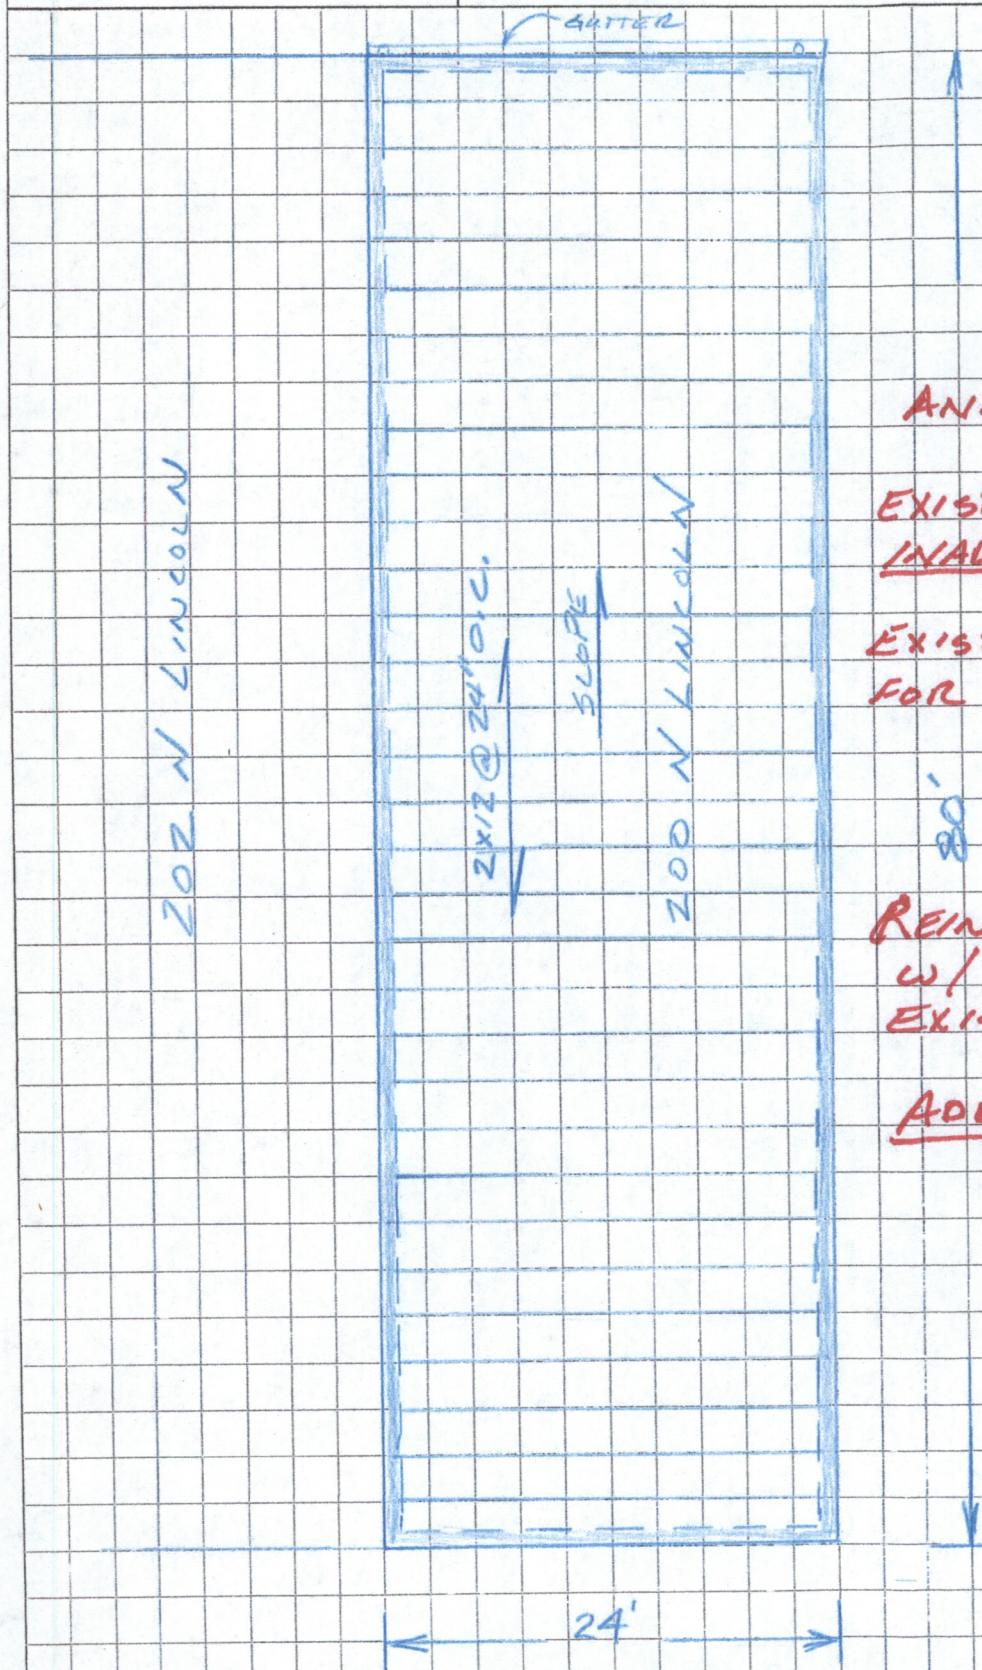 GUTTER
202 N LINCOLN
2X12 @ 24" O.C.
SLOPE
200 N LINCOLN
80'
24'
AN
EXIS
INA
EXIS
FOR
REIN
W/
EXI
AD